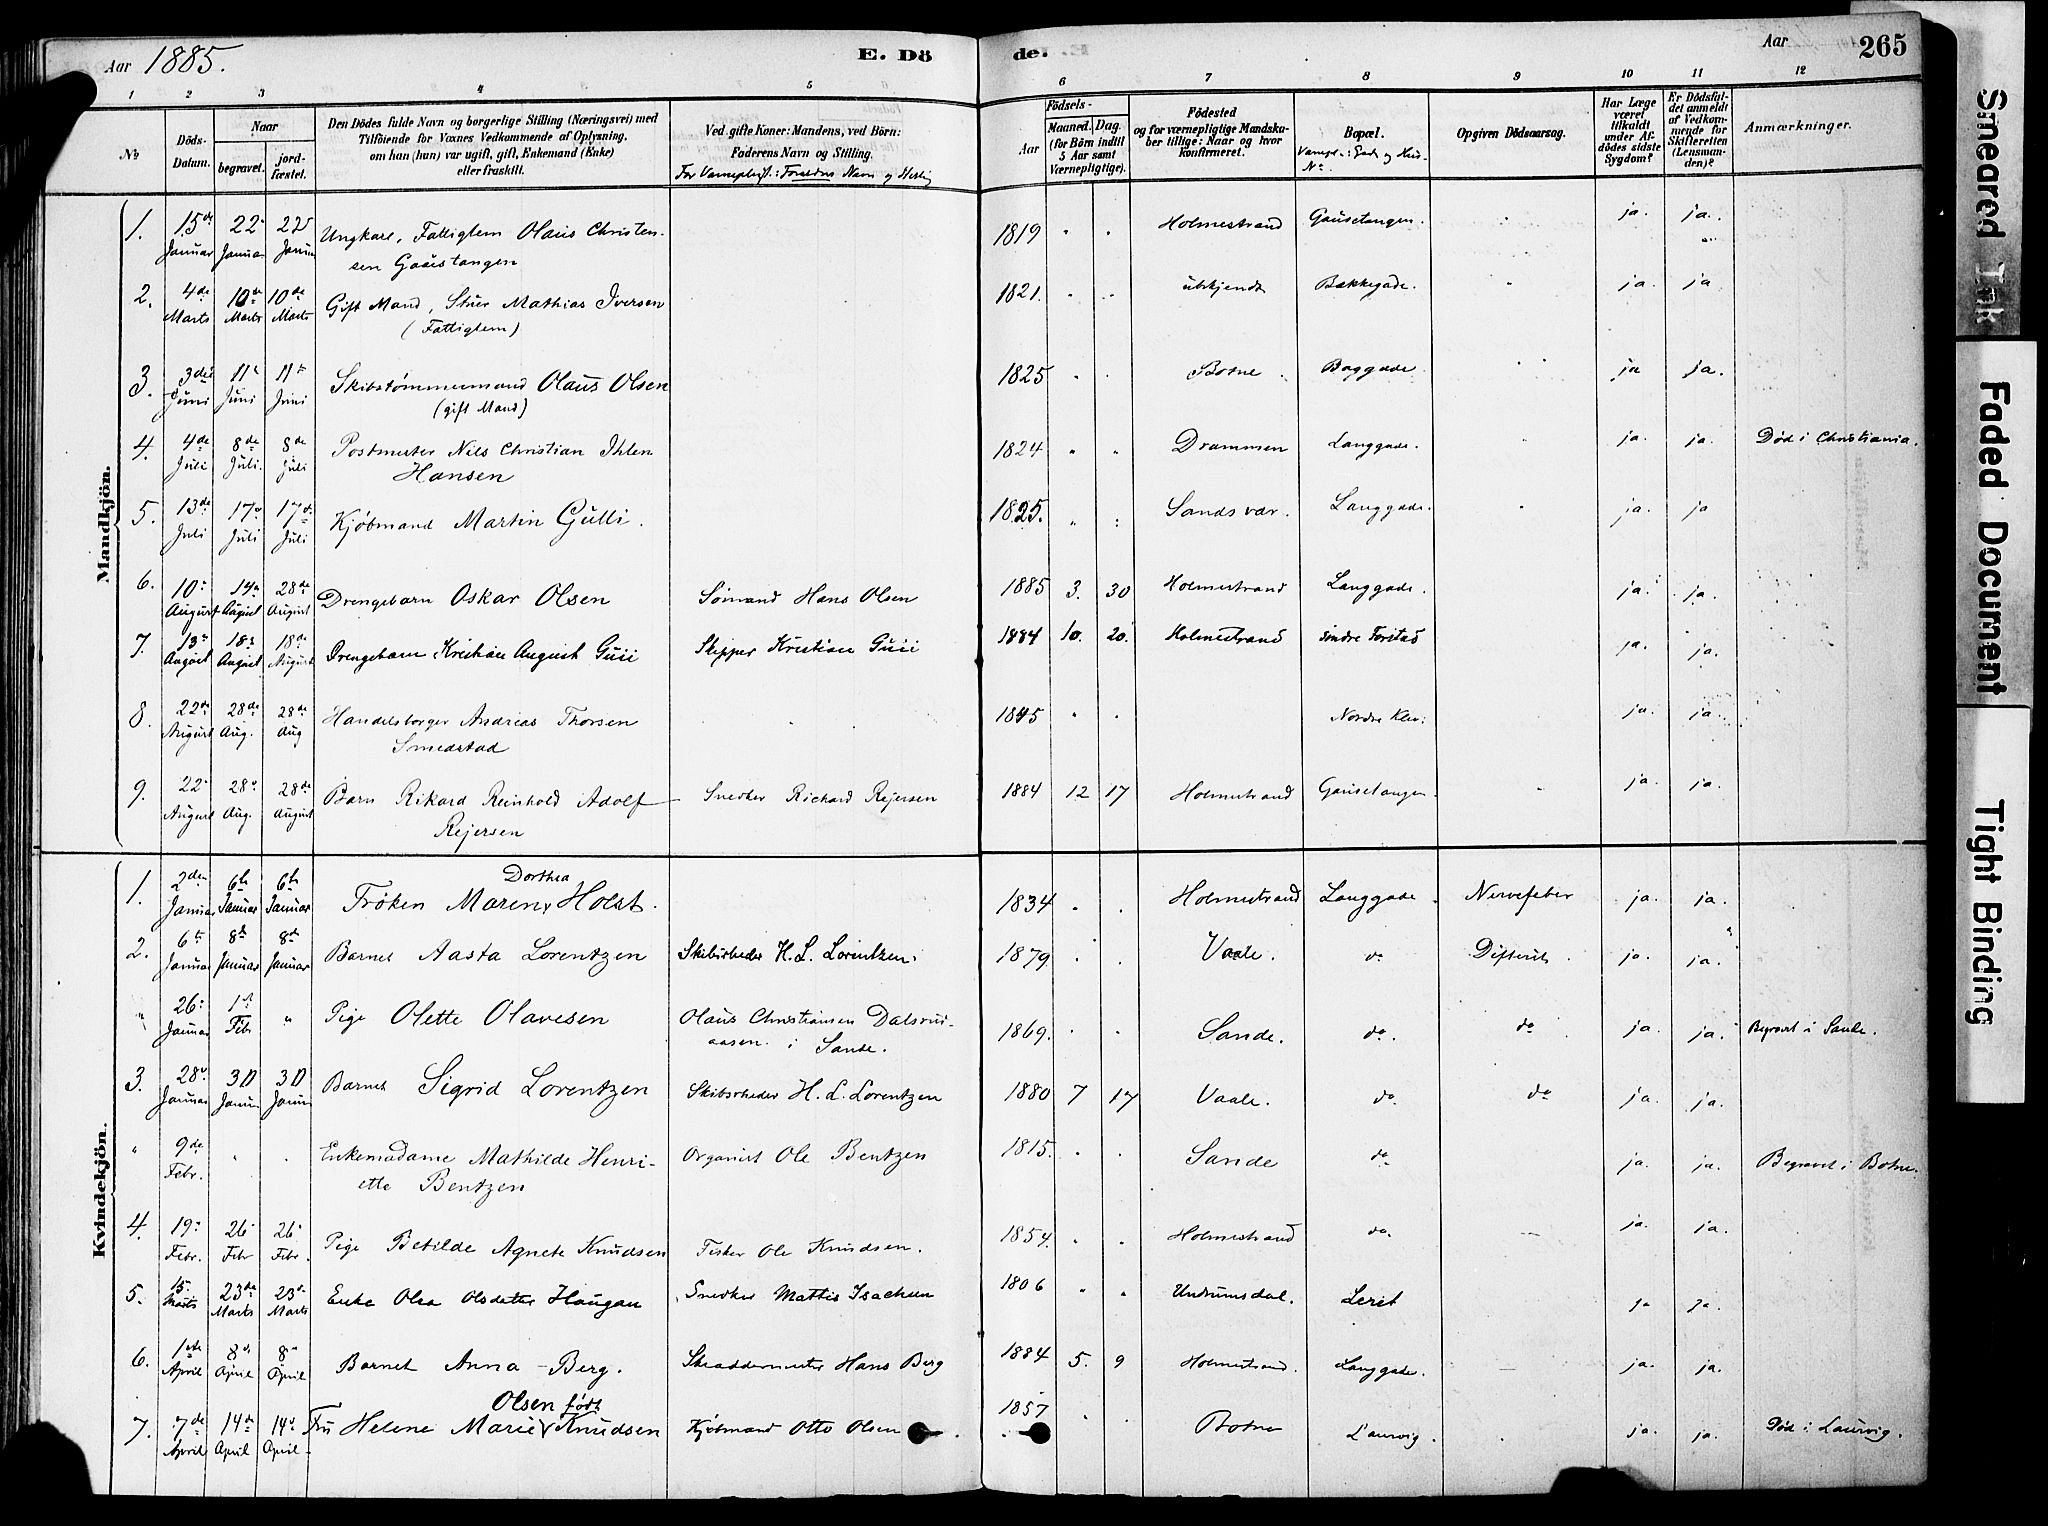 Aar 1885. E. Dö
de. Aar 265
1 2 3 4 5 6 7 8 9 10 11 12
No
Döds-Datum.
Naar
begravet.
jord-fæstet.
Den Dödes fulde Navn og borgerlige Stilling (Næringsvei) med
Tilföiende for Voxnes Vedkommende af Oplysning,
om han (hun) var ugift, gift, Enkemand (Enke)
eller fraskilt.
Ved gifte Koner: Mandens, ved Börn:
Faderens Navn og Stilling.
For Værnepligt.: Forældres Navn og
Födsels-
Aar
Maaned. Dag.
(for Börn indtil
5 Aar samt
Værnepligtige).
Födested
og for værnepligtige Mandska-
ber tillige: Naar og hvor
konfirmeret.
Bopæl.
Værnepl.: Gade og Hus-
No.
Opgiven Dödsaarsag.
Har Læge
været
tilkaldt
under Af-
dödes sidste
Sygdom?
Er Dödsfal-
det anmeldt
af Vedkom-
mende for
Skifteretten
(Lensman-
den)?
Anmærkninger.
Mandkjön.
1. 15de Januar 22 Januar 22 Januar Ungkarl, Fattiglem Olaus Christen-
sen Gausetangen 1819 " " Holmestrand Gausetangen. ja. ja.
2. 4de Marts 10de Marts 10de Marts Gift Mand, Stuer Mathias Iversen
(Fattiglem) 1821. " " ubekjendt Bakkegade. ja. ja
3. 3die Juni 11te Juni 11te Juni Skibstømmermand Olaus Olsen
(gift Mand) 1825 " " Botne Baggade ja ja.
4. 4de Juli 8de Juli. 8de Juli Postmester Nils Christian Ihlen
Hansen 1824 " " Drammen Langgade. ja. ja. Død i Christiania.
5. 13de Juli 17de Juli 17de Juli Kjøbmand Martin Gulli. 1825. " " Sandsvær. Langgade. ja. ja
6. 10 August 14 August 28de August Drengebarn Oskar Olsen Sømand Hans Olsen 1885 3. 30 Holmestrand Langgade. ja. ja.
7. 13 August 18 August 18de August Drengebarn Kristian August Guii Skipper Kristian Guii 1884 10. 20. Holmestrand søndre Forstad ja. ja.
8. 22de August 28de Aug. 28de Aug Handelsborger Andreas Thorsen
Smedstad 1845 " " Nordre Klev: ja. ja.
9. 22 August 28 Aug. 28de August Barn Rikard Reinhold Adolf
Rejersen Snedker Richard Rejersen 1884 12 17 Holmestrand Gausetangen. ja. ja.
Kvindekjön.
1. 2den Januar 6te Januar 6te Januar Dorthea
Frøken Maren v Holst. 1834 " " Holmestrand Langgade. Nervefeber ja. ja.
2. 6te Januar 8de Januar 8de Januar Barnet Aasta Lorentzen Skibsrheder H. L. Lorentzen. 1879 " " Vaale. do Difterit ja. ja.
" 26 Januar 1st Febr " Pige Olette Olavesen Olaus Christiansen Dalsrud-
aasen i Sande. 1869. " " Sande. do. do ja. ja. Begravet i Sande.
3. 28 Januar 30 Januar 30 Januar Barnet Sigrid Lorentzen Skibsrheder H. L. Lorentzen 1880 7 17 Vaale. do. do ja. ja.
" 9de Febr. " " Enkemadame Mathilde Henri-
ette Bentzen Organist Ole Bentzen 1815. " " Sande do ja. ja. Begravet i Botne.
4. 19 Febr. 26 Febr 26 Febr. Pige Betilde Agnete Knudsen Fisker Ole Knudsen. 1854. " " Holmestrand do. — ja. ja.
5. 15 Marts 23de Marts 23de Marts Enke Olea Olsdatter Haugan Snedker Mattis Isachsen 1806 " " Undrumsdal. Leret ja ja.
6. 1ste April 8de April 8de April Barnet Anna Berg. Skræddermester Hans Berg 1884 5. 9 Holmestrand. Langgade. — ja. ja.
7. 7de April 14de April 14de April Olsen født
Fru Helene Marie v Knudsen Kjøbmand Otto Olsen 1857 " " Botne Laurvig. ja. ja. Død i Laurvig.
Smeared Ink
Faded Document
Tight Binding